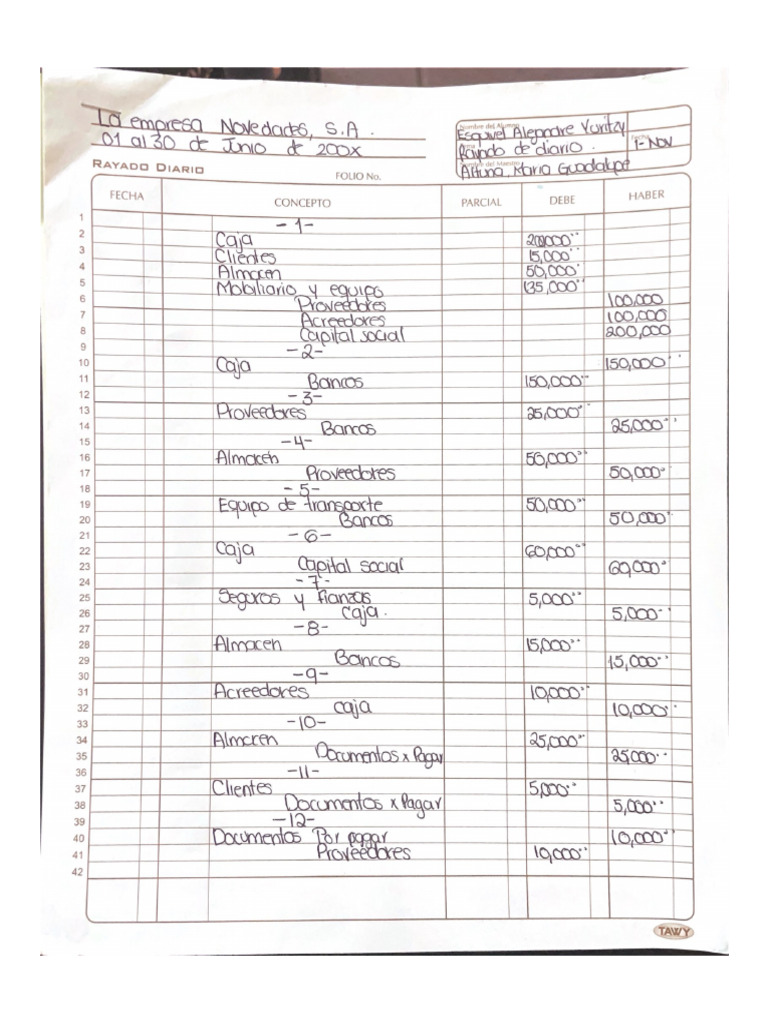 La empresa Novedades, S.A.
01 al 30 de Junio de 200x
Nombre del Alumno
Esquivel Alejandre Yuritzy
Rayado de diario.
Fecha
1-Nov
Nombre del Maestro
Altuna, Maria Guadalupe
RAYADO DIARIO
FOLIO No.
FECHA CONCEPTO PARCIAL DEBE HABER
1 -1-
2 Caja 200,000
3 Clientes 15,000
4 Almacen 50,000
5 Mobiliario y equipo 135,000
6 Proveedores 100,000
7 Acreedores 100,000
8 Capital social 200,000
9 -2-
10 Caja 150,000
11 Bancos 150,000
12 -3-
13 Proveedores 25,000
14 Bancos 25,000
15 -4-
16 Almacen 50,000
17 Proveedores 50,000
18 -5-
19 Equipo de transporte 50,000
20 Bancos 50,000
21 -6-
22 Caja 60,000
23 Capital social 60,000
24 -7-
25 Seguros y fianzas 5,000
26 Caja. 5,000
27 -8-
28 Almacen 15,000
29 Bancos 15,000
30 -9-
31 Acreedores 10,000
32 Caja 10,000
33 -10-
34 Almacen 25,000
35 Documentos x Pagar 25,000
36 -11-
37 Clientes 5,000
38 Documentos x Pagar 5,000
39 -12-
40 Documentos Por pagar 10,000
41 Proveedores 10,000
42
TAWY